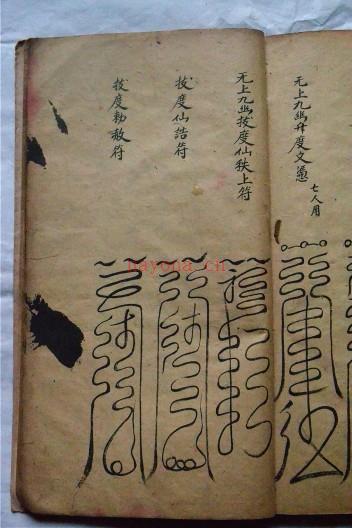 无上九幽升度文憑
七人用
无上九幽拔度仙秩上符
拔度仙誥符
拔度勅赦符
nayona.cn